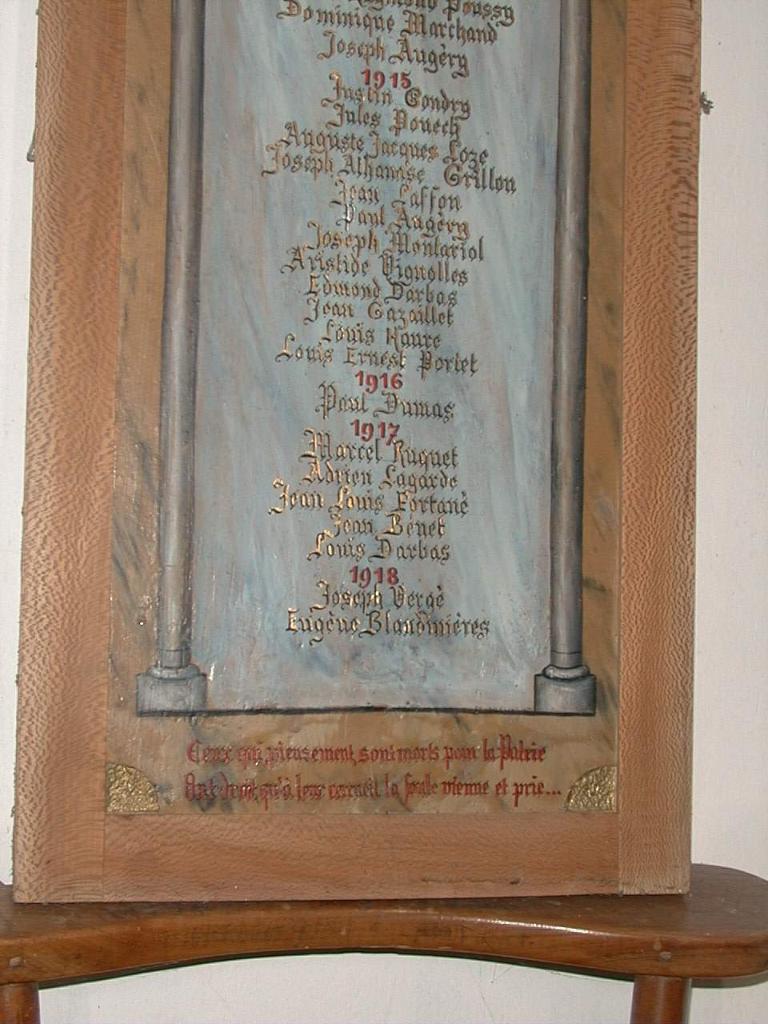 Poussy
Dominique Marchand
Joseph Augèry
1915
Justin Gondry
Jules Pouech
Auguste Jacques Loze
Joseph Athanase Grillon
Jean Laffon
Paul Augèry
Joseph Montariol
Aristide Vignolles
Edmond Darbas
Jean Gazaillet
Louis Naure
Louis Ernest Portet
1916
Paul Dumas
1917
Marcel Ruquet
Adrien Lagarde
Jean Louis Fortané
Jean Bénet
Louis Darbas
1918
Joseph Vergé
Eugène Blandinières
Ceux qui pieusement sont morts pour la Patrie
Ont droit qu'à leur cercueil la foule vienne et prie...